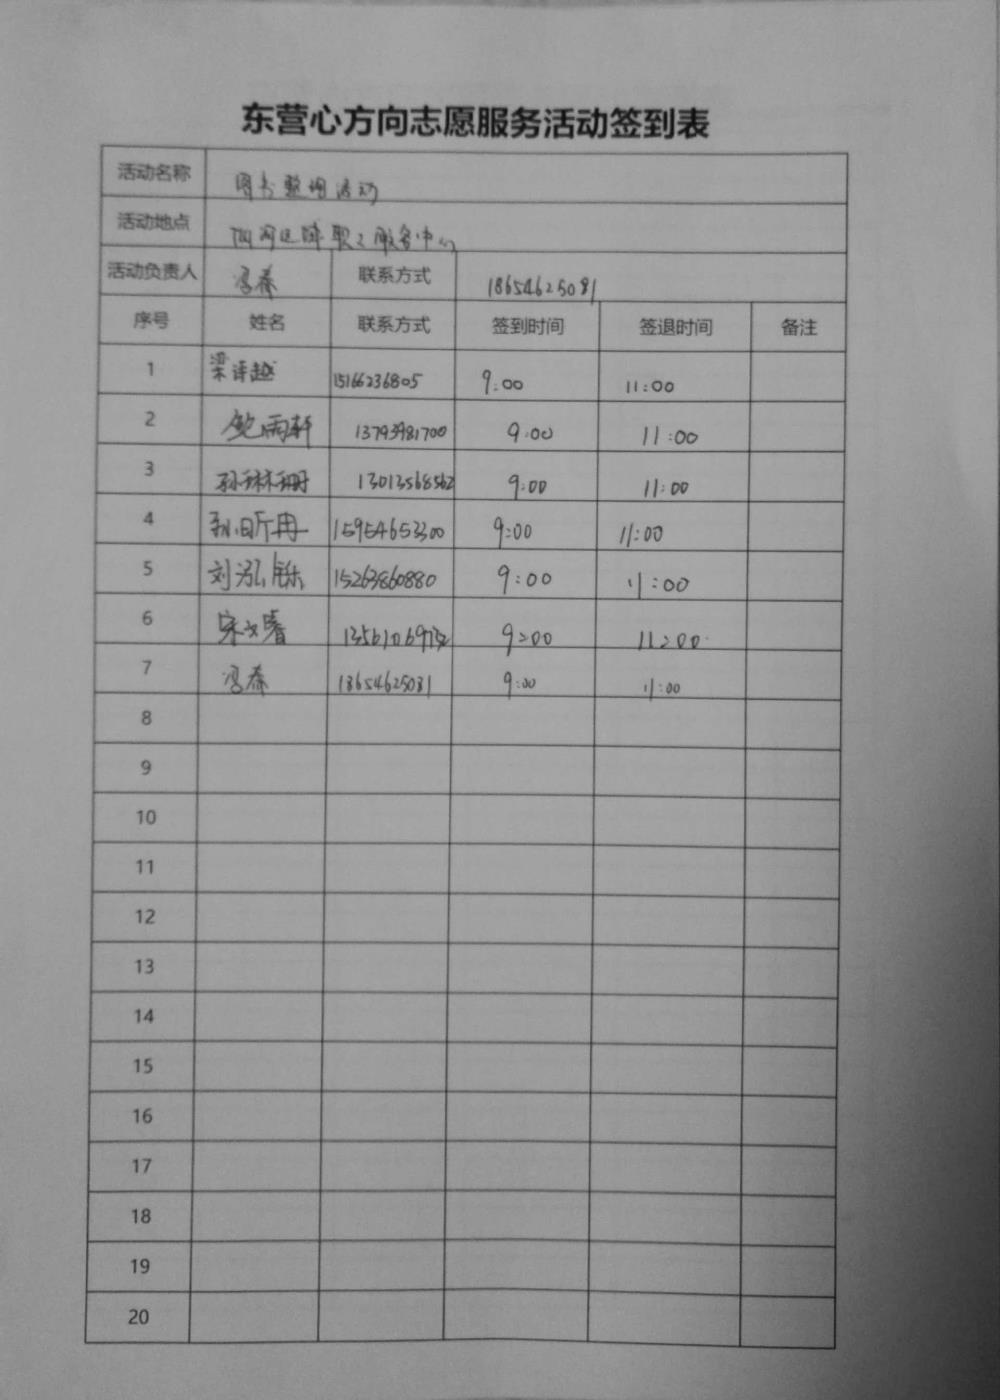 东营心方向志愿服务活动签到表
活动名称 图书整理活动
活动地点 服务中心
活动负责人 冯春 联系方式 18654625081
序号 姓名 联系方式 签到时间 签退时间 备注
1 梁译越 15166236805 9:00 11:00
2 鲍雨轩 13793981700 9:00 11:00
3 孙琳珊 13013568562 9:00 11:00
4 孙昕冉 15954653300 9:00 11:00
5 刘泓铄 15263860880 9:00 11:00
6 宋文睿 9:00 11:00
7 冯春 18654625081 9:00 11:00
8
9
10
11
12
13
14
15
16
17
18
19
20